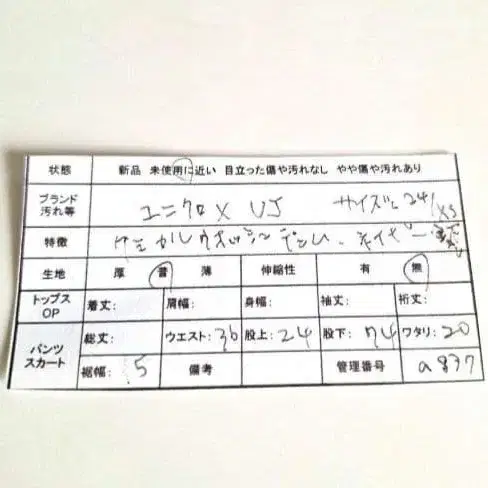 状態 新品 未使用に近い 目立った傷や汚れなし やや傷や汚れあり
ブランド 汚れ等 ユニクロ× UJ サイズ 24/XS
特徴 ケミカルウォッシュデニム、ネイビー
生地 厚 普 薄 伸縮性 有 無
トップス OP 着丈: 肩幅: 身幅: 袖丈: 裄丈:
パンツ スカート 総丈: ウエスト:36 股上:24 股下:74 ワタリ:20
裾幅: 15 備考 管理番号 a837